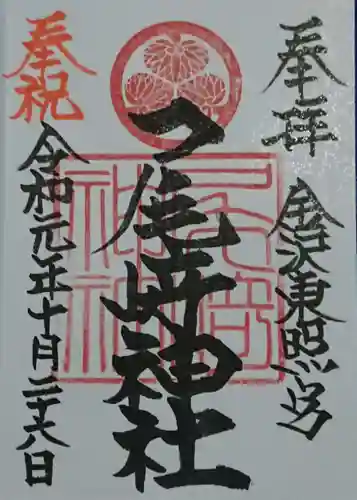 奉拝
金沢東照宮
尾崎神社
奉祝
令和元年十月二十八日